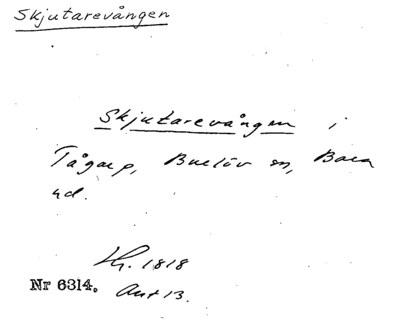 Skjutarevången
Skjutarevången i
Tågarp, Burlöv sn, Bara
hd.
1818
Nr 6314. Akt 13.